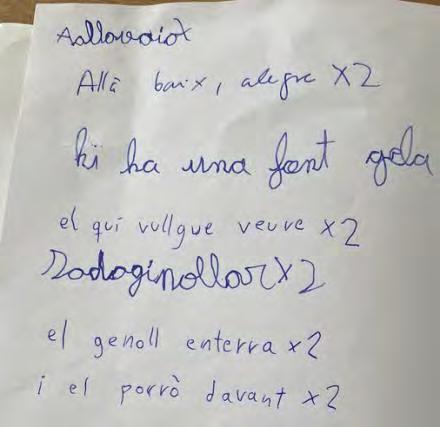 Aallavaiox
Allà baix, alegre x2
hi ha una font gela
el qui vullgue veuve x2
Sadoginollar x2
el genoll enterra x2
i el porrò davant x2